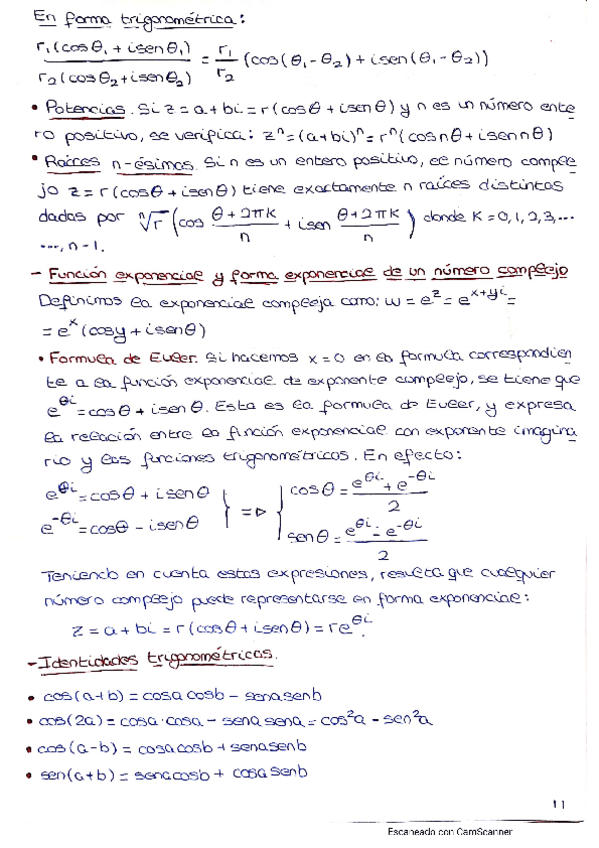 En forma trigonométrica:
r₁(cosθ₁ + isenθ₁) / r₂(cosθ₂+isenθ₂) = r₁/r₂ (cos(θ₁-θ₂) + isen(θ₁-θ₂))
• Potencias. Si z = a + bi = r(cosθ + isenθ) y n es un número ente
ro positivo, se verifica: zⁿ = (a+bi)ⁿ = rⁿ(cosnθ + isennθ)
• Raíces n-ésimas. Si n es un entero positivo, el número comple
jo z = r(cosθ + isenθ) tiene exactamente n raíces distintas
dadas por ⁿ√r (cos (θ+2πK)/n + isen (θ+2πK)/n) donde K = 0, 1, 2, 3, ...
..., n - 1.
- Función exponencial y forma exponencial de un número complejo
Definimos la exponencial compleja como: w = e^z = e^(x+yi) =
= e^x (cosy + isenθ)
• Formula de Euler. Si hacemos x = 0 en la formula correspondien
te a la función exponencial de exponente complejo, se tiene que
e^(θi) = cosθ + isenθ. Esta es la formula de Euler, y expresa
la relación entre la función exponencial con exponente imagina
rio y las funciones trigonométricas. En efecto:
e^(θi) = cosθ + isenθ } => { cosθ = (e^(θi) + e^(-θi))/2
e^(-θi) = cosθ - isenθ } => { senθ = (e^(θi) - e^(-θi))/2
Teniendo en cuenta estas expresiones, resulta que cualquier
número complejo puede representarse en forma exponencial:
z = a + bi = r(cosθ + isenθ) = re^(θi).
- Identidades trigonométricas.
• cos(a+b) = cosa cosb - sena senb
• cos(2a) = cosa · cosa - sena sena = cos²a - sen²a
• cos(a-b) = cosa cosb + sena senb
• sen(a+b) = sena cosb + cosa senb
11
Escaneado con CamScanner